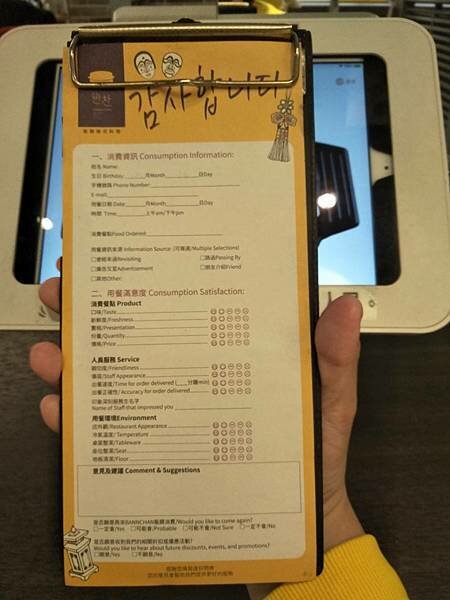 반찬
감사합니다
一、消費資訊 Consumption Information:
姓名 Name:
生日 Birthday: 月Month 日Day
手機號碼 Phone Number:
E-mail:
用餐日期 Date: 月Month 日Day
時間 Time 上午am/下午pm
消費餐點Food Ordered
用餐資訊來源 Information Source (可複選/Multiple Selections)
□曾經來過Revisiting □路過Passing By
□廣告文宣Advertisement □朋友介紹Friend
□其他Other:
二、用餐滿意度 Consumption Satisfaction:
消費餐點 Product
口味/Taste
新鮮度/Freshness
賣相/Presentation
份量/Quantity
價格/Price
人員服務 Service
親切度/Friendliness
儀容/Staff Appearance
出餐速度/Time for order delivered (分鐘min)
出餐正確性/ Accuracy for order delivered
印象深刻服務生名字
Name of Staff that impressed you
用餐環境Environment
店外觀/Restaurant Appearance
冷氣溫度/ Temperature
桌面整潔/Tableware
座位整潔/Seat
地板清潔/Floor
意見及建議 Comment & Suggestions
是否願意再來BANNCHAN飯饌消費/Would you like to come again?
□一定會/Yes □可能會/Probable □可能不會/Not Sure □一定不會/No
是否願意收到我們的相關折扣或優惠活動?
Would you like to hear about future discounts, events, and promotions?
□願意/Yes □不願意/No